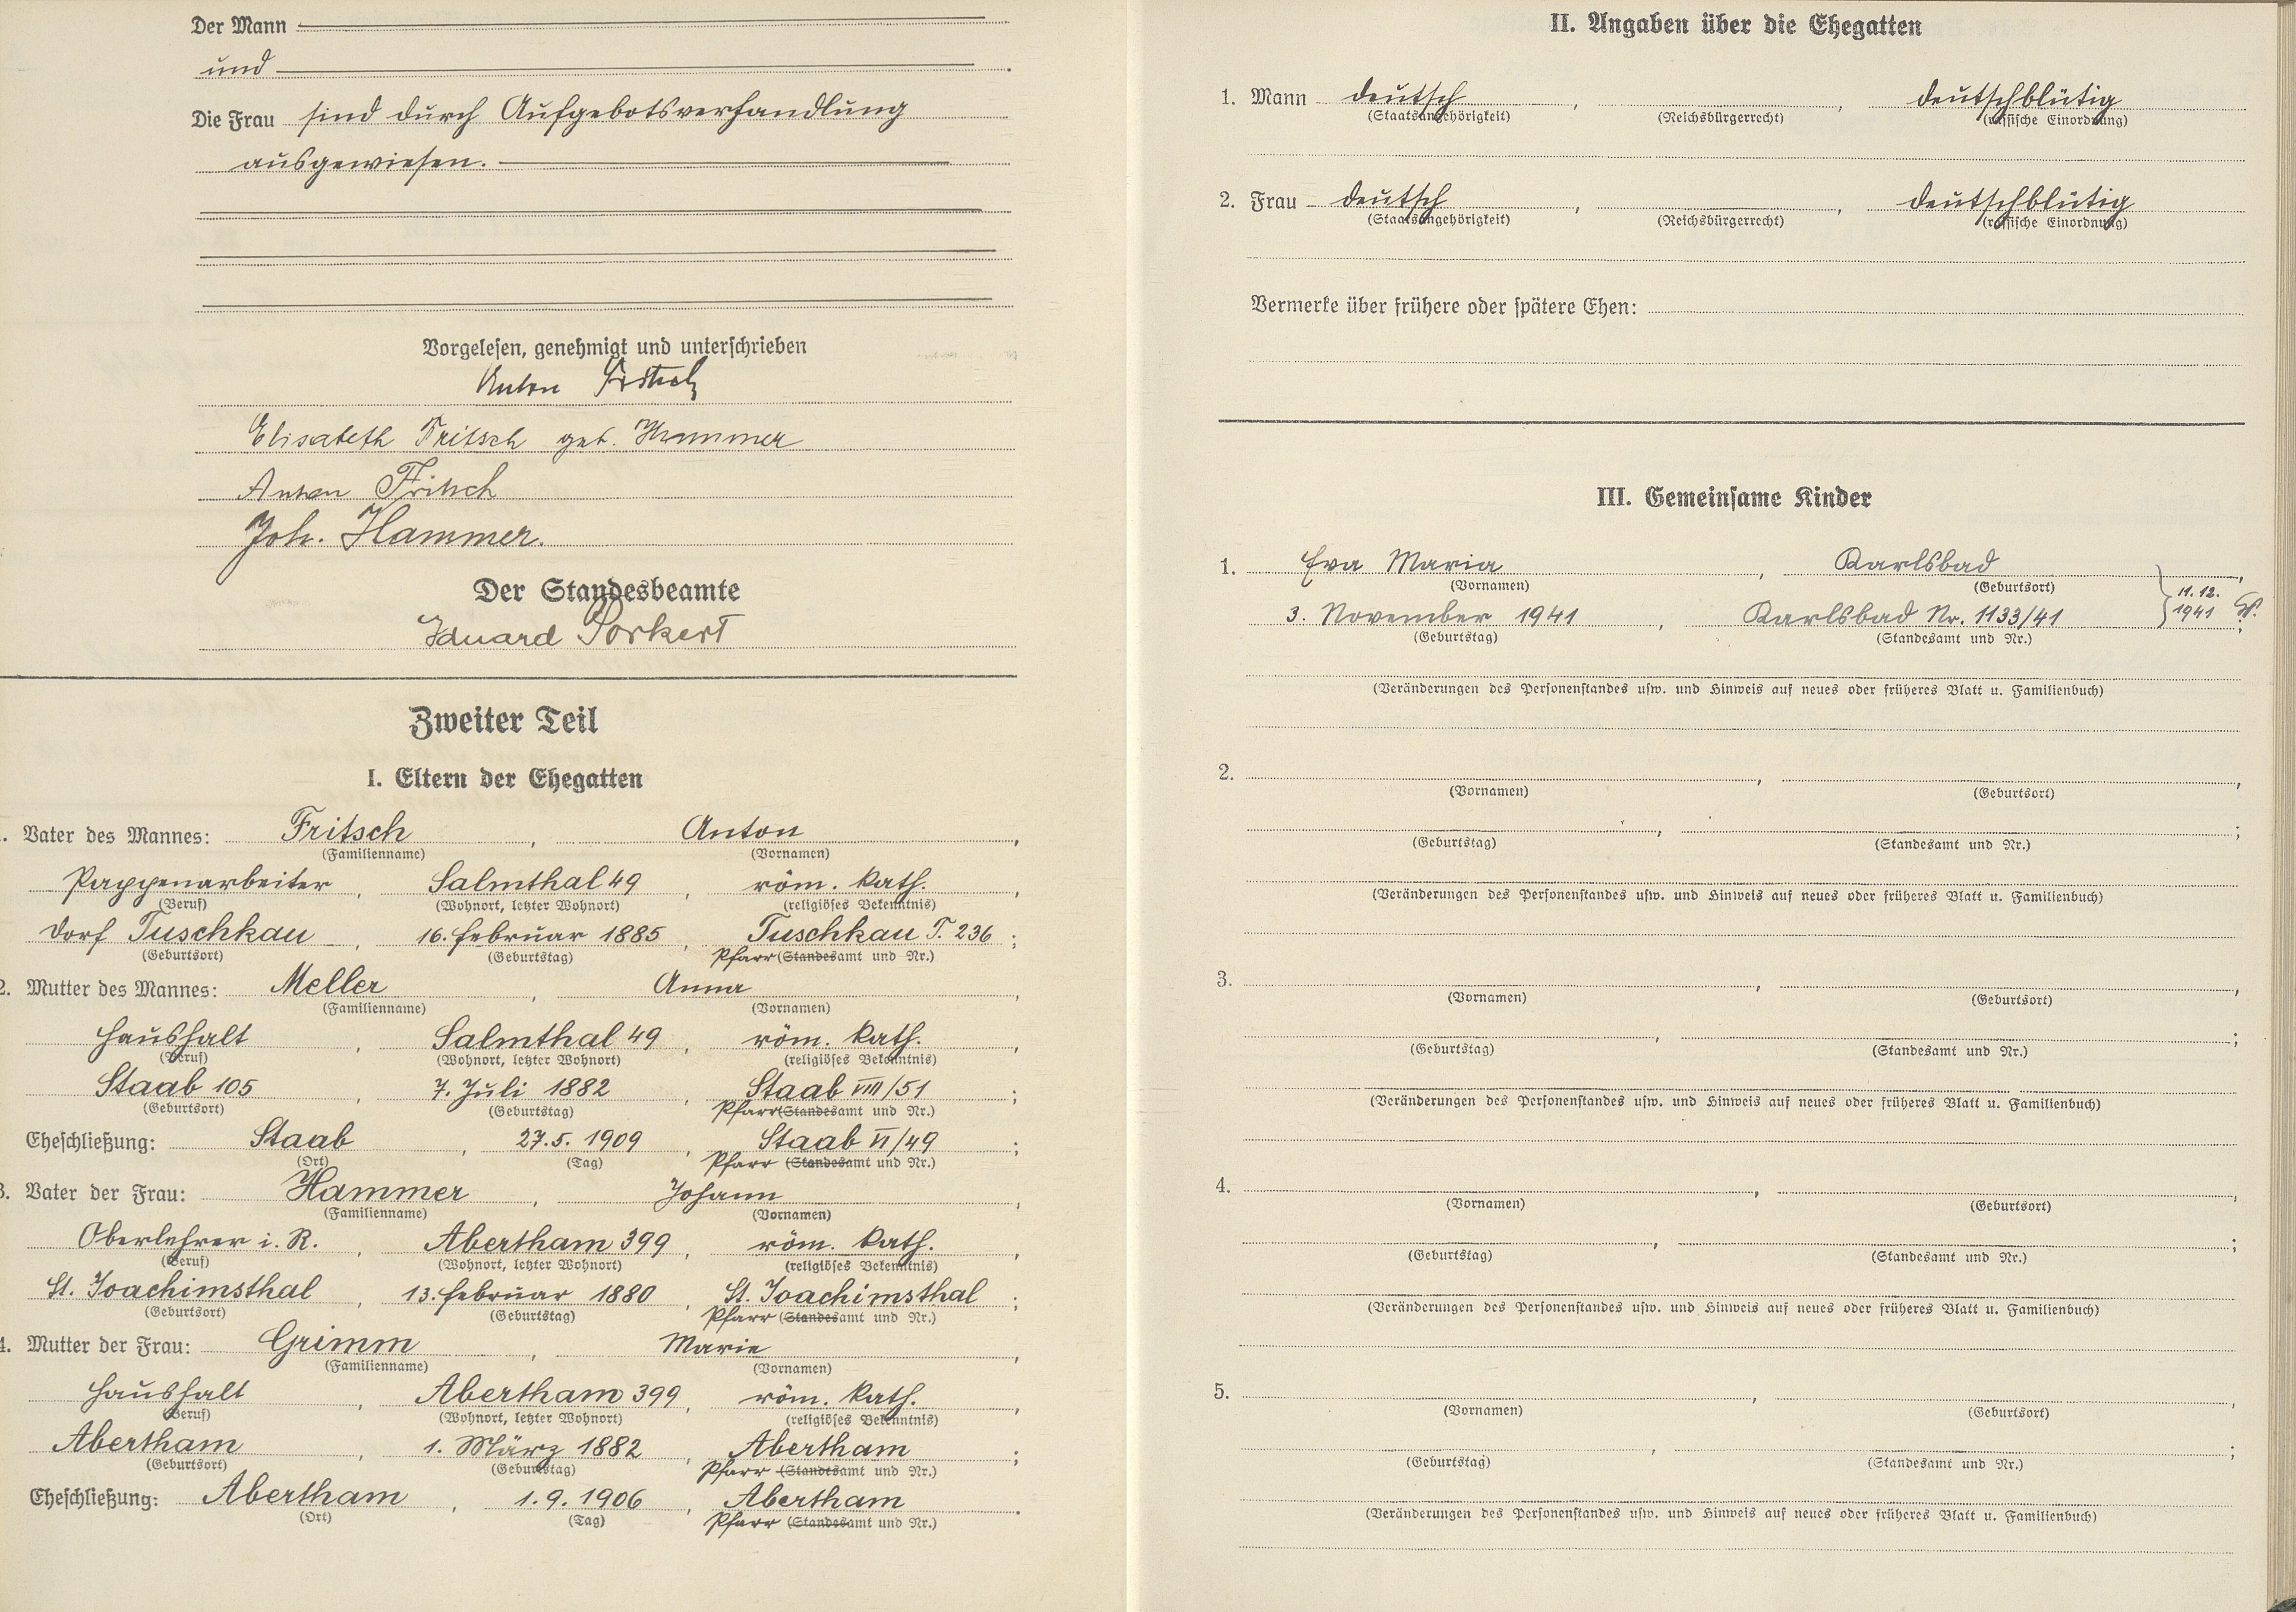 Der Mann
und
Die Frau sind durch Aufgebotsverhandlung
ausgewiesen.
Vorgelesen, genehmigt und unterschrieben
Anton Fritsch
Elisabeth Fritsch geb. Hammer
Anton Fritsch
Joh. Hammer.
Der Standesbeamte
Eduard Porkert
Zweiter Teil
I. Eltern der Ehegatten
1. Vater des Mannes: Fritsch, Anton,
(Familienname) (Vornamen)
Pappenarbeiter, Salmthal 49, röm. kath.,
(Beruf) (Wohnort, letzter Wohnort) (religiöses Bekenntnis)
Dorf Tuschkau, 16. Februar 1885, Tuschkau T. 236;
(Geburtsort) (Geburtstag) Pfarr (Standesamt und Nr.)
2. Mutter des Mannes: Meller, Anna,
(Familienname) (Vornamen)
Haushalt, Salmthal 49, röm. kath.,
(Beruf) (Wohnort, letzter Wohnort) (religiöses Bekenntnis)
Staab 105, 7. Juli 1882, Staab VIII/51;
(Geburtsort) (Geburtstag) Pfarr (Standesamt und Nr.)
Eheschließung: Staab, 27.5.1909, Staab VI/49;
(Ort) (Tag) Pfarr (Standesamt und Nr.)
3. Vater der Frau: Hammer, Johann,
(Familienname) (Vornamen)
Oberlehrer i. R., Abertham 399, röm. kath.,
(Beruf) (Wohnort, letzter Wohnort) (religiöses Bekenntnis)
St. Joachimsthal, 13. Februar 1880, St. Joachimsthal;
(Geburtsort) (Geburtstag) Pfarr (Standesamt und Nr.)
4. Mutter der Frau: Grimm, Marie,
(Familienname) (Vornamen)
Haushalt, Abertham 399, röm. kath.,
(Beruf) (Wohnort, letzter Wohnort) (religiöses Bekenntnis)
Abertham, 1. März 1882, Abertham;
(Geburtsort) (Geburtstag) Pfarr (Standesamt und Nr.)
Eheschließung: Abertham, 1.9.1906, Abertham.
(Ort) (Tag) Pfarr (Standesamt und Nr.)
II. Angaben über die Ehegatten
1. Mann deutsch, , deutschblütig
(Staatsangehörigkeit) (Reichsbürgerrecht) (rassische Einordnung)
2. Frau deutsch, , deutschblütig
(Staatsangehörigkeit) (Reichsbürgerrecht) (rassische Einordnung)
Vermerke über frühere oder spätere Ehen:
III. Gemeinsame Kinder
1. Eva Maria, Karlsbad,
(Vornamen) (Geburtsort) 11.12.
3. November 1941, Karlsbad Nr. 1133/41; 1941
(Geburtstag) (Standesamt und Nr.)
(Veränderungen des Personenstandes usw. und Hinweis auf neues oder früheres Blatt u. Familienbuch)
2. , ,
(Vornamen) (Geburtsort)
, ;
(Geburtstag) (Standesamt und Nr.)
(Veränderungen des Personenstandes usw. und Hinweis auf neues oder früheres Blatt u. Familienbuch)
3. , ,
(Vornamen) (Geburtsort)
, ;
(Geburtstag) (Standesamt und Nr.)
(Veränderungen des Personenstandes usw. und Hinweis auf neues oder früheres Blatt u. Familienbuch)
4. , ,
(Vornamen) (Geburtsort)
, ;
(Geburtstag) (Standesamt und Nr.)
(Veränderungen des Personenstandes usw. und Hinweis auf neues oder früheres Blatt u. Familienbuch)
5. , ,
(Vornamen) (Geburtsort)
, ;
(Geburtstag) (Standesamt und Nr.)
(Veränderungen des Personenstandes usw. und Hinweis auf neues oder früheres Blatt u. Familienbuch)